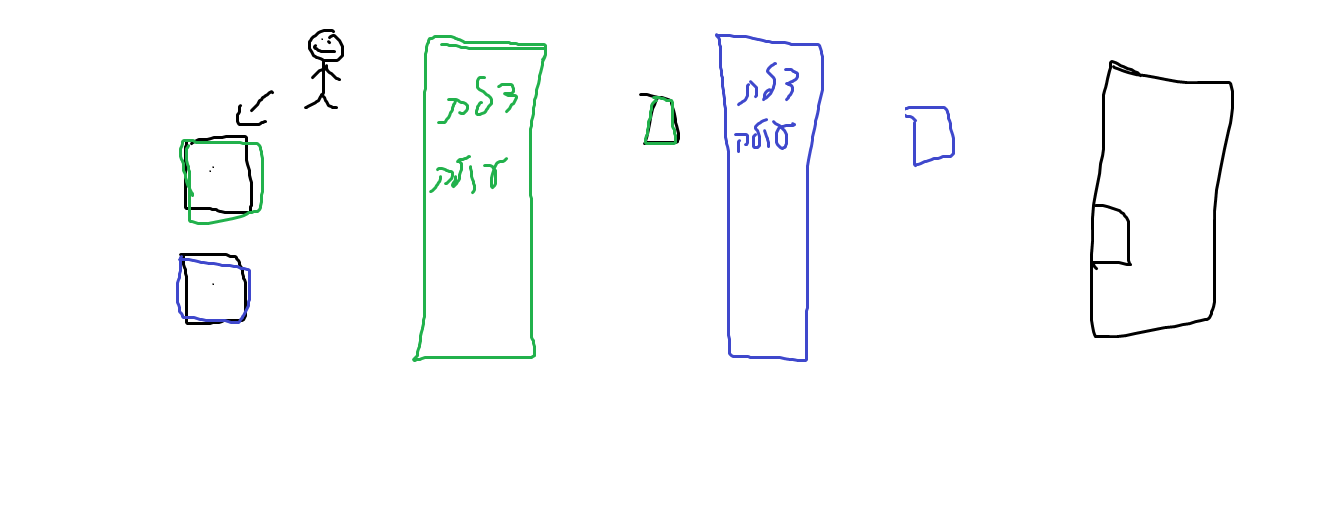 דלת
עולה
דלת
עולה